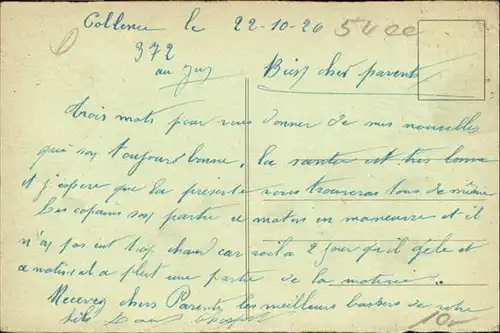 Coblence le 22-10-26
372
au jus
Bien cher parents
trois mots pour vous donner de mes nouvelles
qui son toujours bonne. la santée est très bonne
et j'espère que la présente vous trouveras tous de même
Les copains son partie ce matin en maneuvre et il
n'on pas eut trop chaud car voila 2 jour qu'il gèle et
ce matin il a plut une partie de la matinée.
Recevez chers Parents les meilleurs baisers de votre
fils